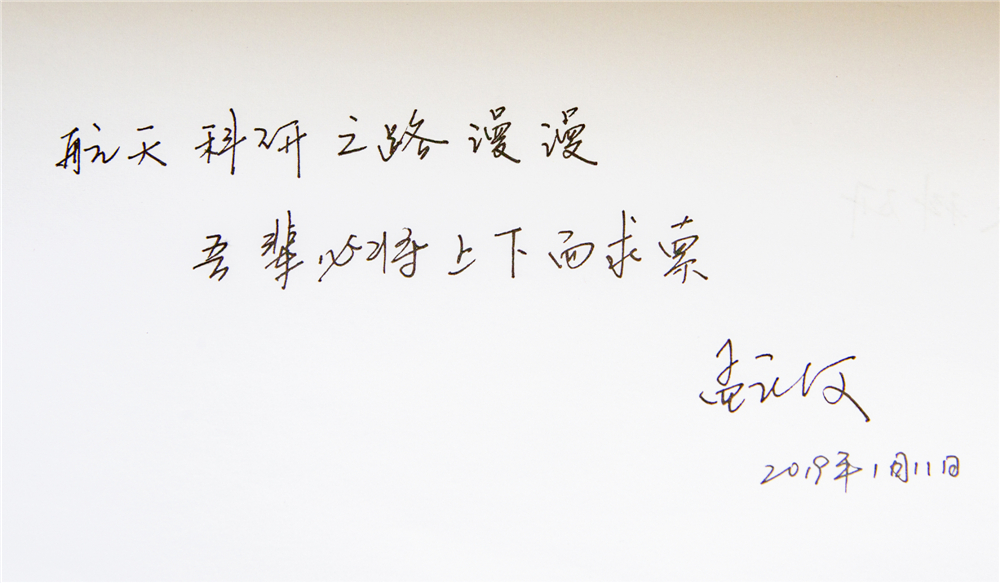 航天科研之路漫漫
吾辈必将上下而求索
2019年1月11日